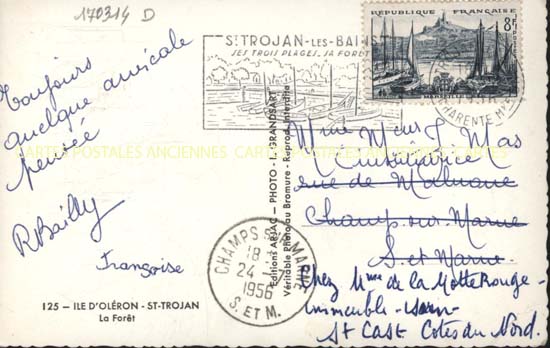 170314 D
Toujours
quelque amicale
pensée
RBailly
Françoise
125 – ILE D'OLÉRON - ST-TROJAN
La Forêt
CARTES POSTALES ANCIENNES CARTES POSTALES ANCIENNES CARTES POSTALES ANCIENNES
Editions ARJAC – PHOTO J. GRANDSART
Véritable Photo au Bromure - Reprod. Interdite
ST TROJAN-LES-BAINS
SES TROIS PLAGES, SA FORÊT
RÉPUBLIQUE FRANÇAISE
8F
POSTES
CHARENTE MME
CHAMPS S. MARNE
18
24
1956
S. ET M.
Mme Mas
Institutrice
rue de Malnoue
Champ sur Marne
S. et Marne
Chez Mme de la Motte Rouge
immeuble
St Cast Cotes du Nord.